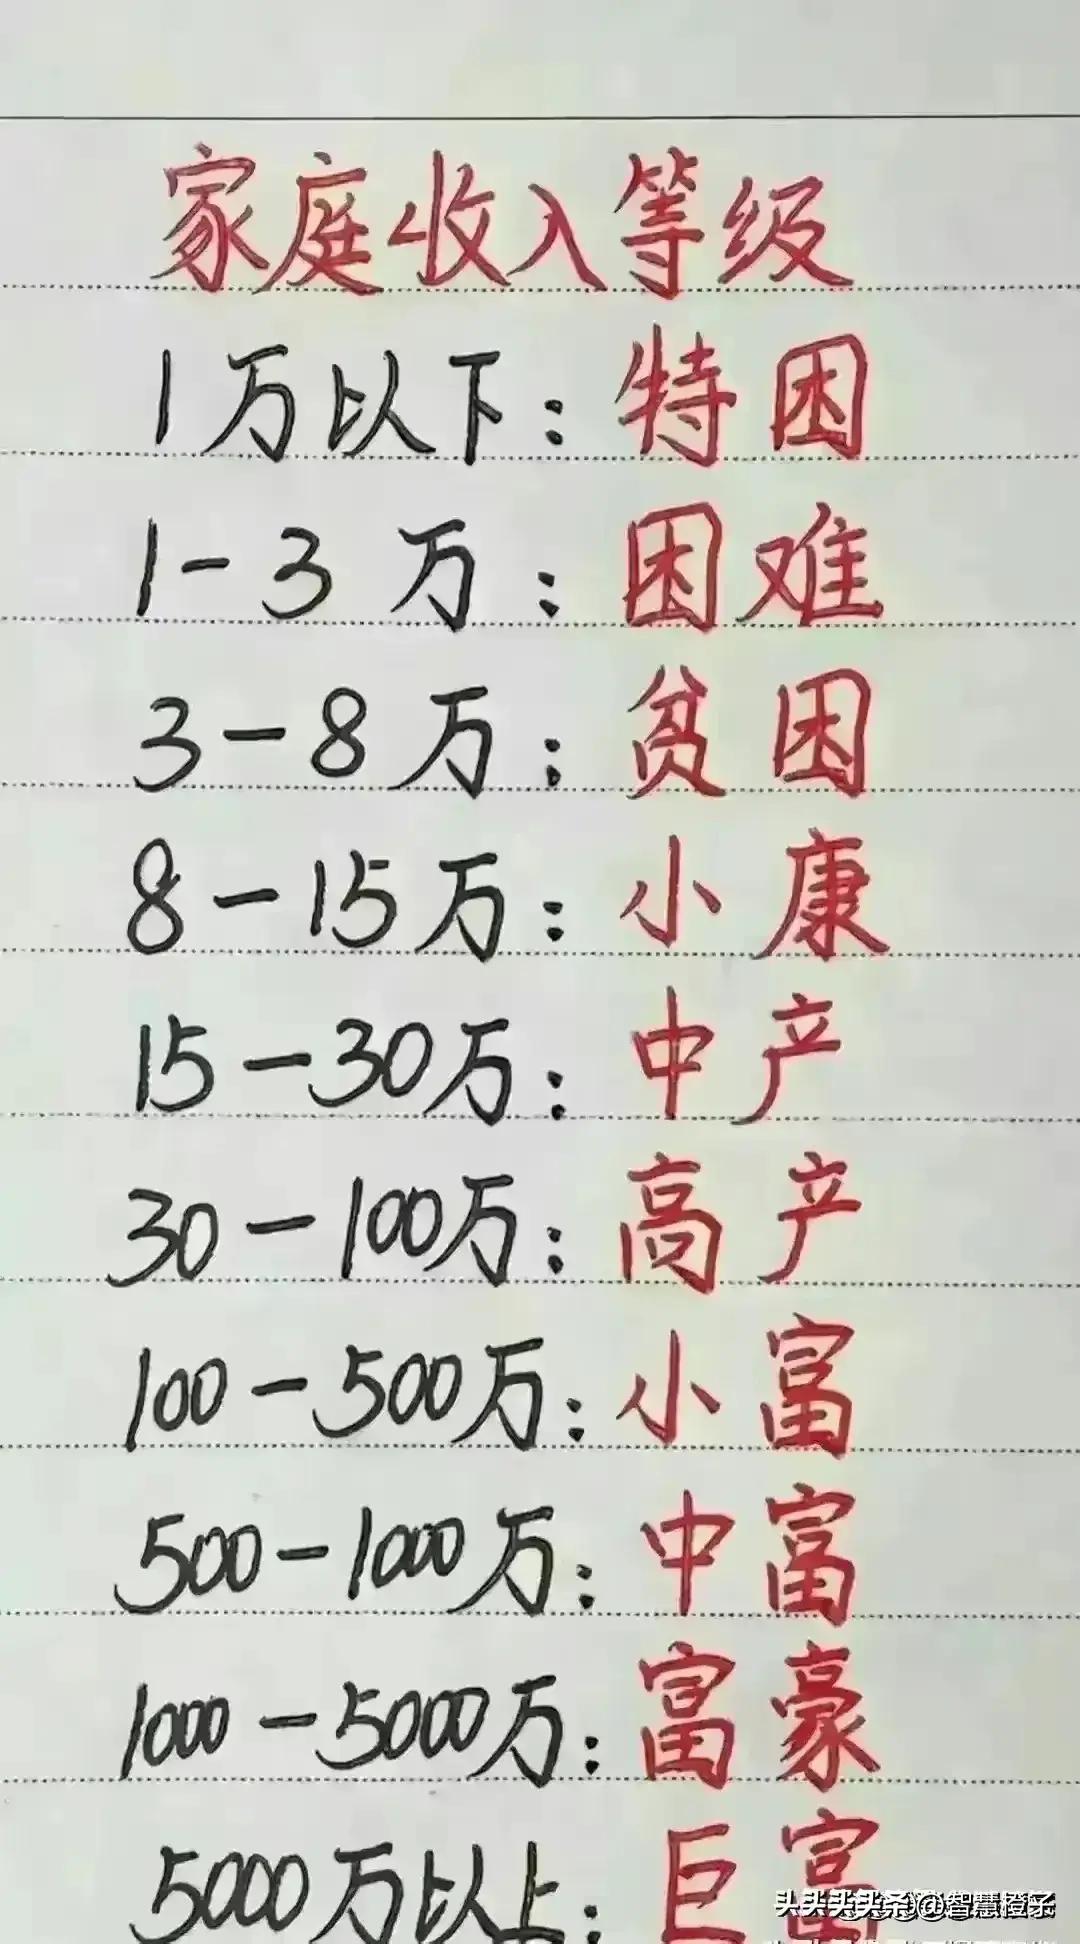 家庭收入等级
1万以下：特困
1-3万：困难
3-8万：贫困
8-15万：小康
15-30万：中产
30-100万：高产
100-500万：小富
500-1000万：中富
1000-5000万：富豪
5000万以上：巨富
@智慧橙子